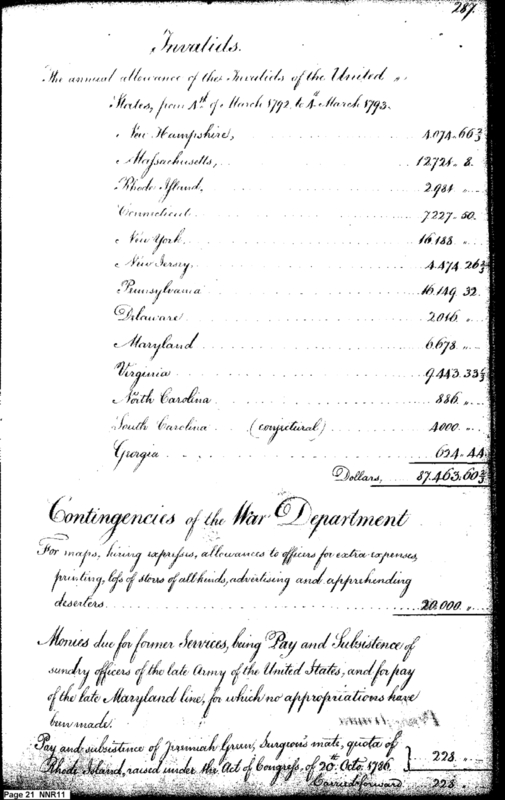 287.
Invalids.
The annual allowance of the Invalids of the United
States, from 4th of March 1792 to 4th March 1793.
New Hampshire, 4.074. 66 2/3
Massachusetts, 12.728. 8.
Rhode Island, 2.984 "
Connecticut 7227. 50.
New York. 16.188 "
New Jersey, 4.474 26 2/3
Pennsylvania 16.149 32.
Delaware 2.016. "
Maryland 6.678. "
Virginia 9.443. 33 1/3
North Carolina 886. "
South Carolina (conjectural) 4000. "
Georgia 654. 44.
Dollars, 87.463. 60 2/3
Contingencies of the War Department
For maps, hiring expresses, allowances to officers for extra expenses,
printing, loss of stores of all kinds, advertising and apprehending
deserters 20.000. "
Monies due for former Services, being Pay and Subsistence of
sundry officers of the late Army of the United States, and for pay
of the late Maryland line, for which no appropriations have
been made.
Pay and subsistence of Jeremiah Green, Surgeon's mate, quota of
Rhode Island, raised under the Act of Congress, of 20th Octo. 1786. } 228 "
Carried forward 228 "
Page 21 NNR11